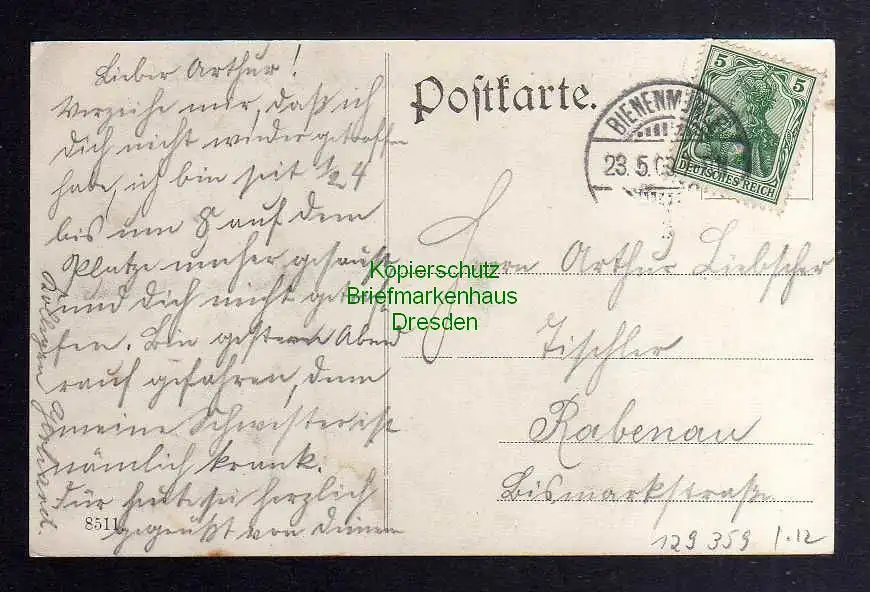 Lieber Arthur!
Verzeihe mir, daß ich
Dich nicht wieder getroffen
habe, ich bin seit 1/2 4
bis um 8 auf dem
Platze umher gesaust
und Dich nicht getrof-
fen. Bin gestern Abend
rauf gefahren, denn
meine Schwester ist
nämlich krank.
Für heute sei herzlich
gegrüßt von Deinem
Postkarte.
BIENENMÜHLE
23.5.03
5 5
DEUTSCHES REICH
Herrn Arthur Liebscher
Tischler
Rabenau
Bismarkstraße
8511
129 359 1.12
Kopierschutz
Briefmarkenhaus
Dresden